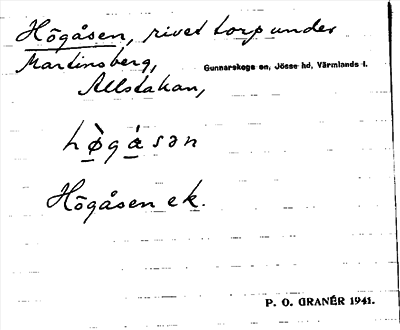 Högåsen, rivet torp under
Martinsberg,
Gunnarskogs sn, Jösse hd, Värmlands l.
Allstakan,
hø̀gásən
Högåsen ek.
P. O. GRANÉR 1941.